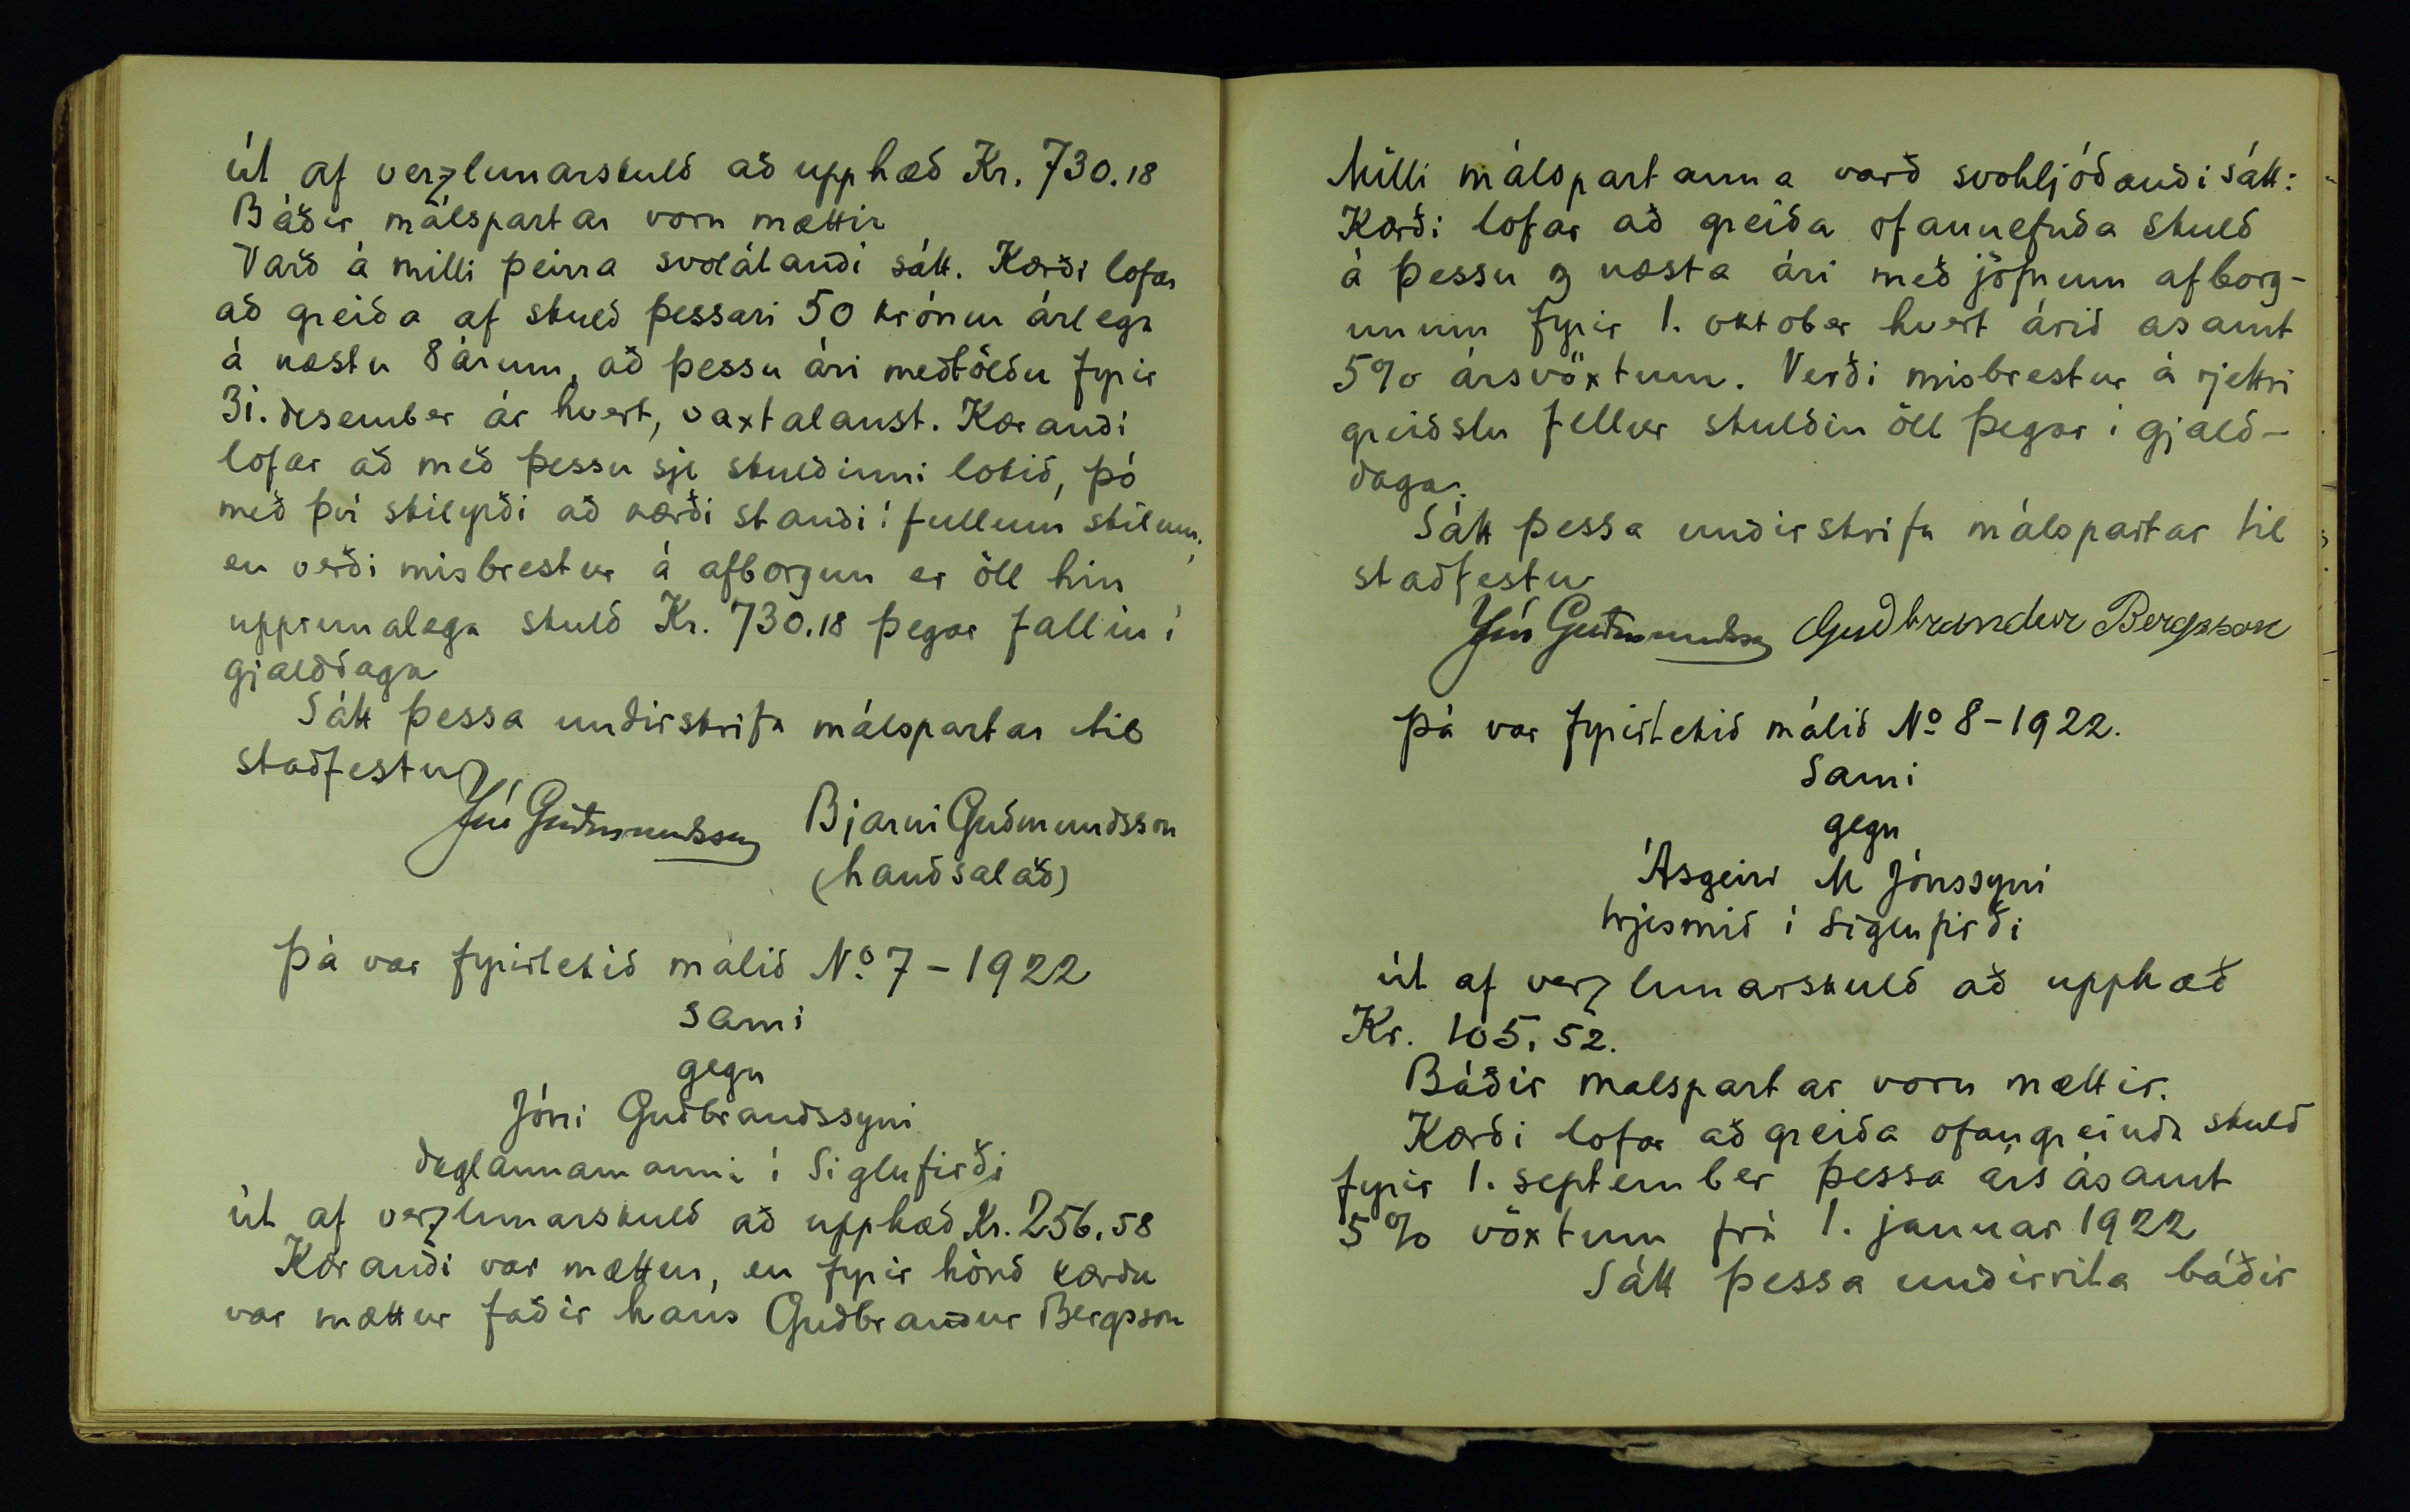 út af verzlunarskuld að upphæð Kr. 730.18
Báðir málspartar voru mættir
Varð á milli þeirra svolátandi sátt. Kærði lofar
að greiða af skuld þessari 50 krónur árlega
á næstu 8 árum, að þessu ári meðtöldu fyrir
31. desember ár hvert, vaxtalaust. Kærandi
lofar að með þessu sje skuldinni lokið, þó
með því skilyrði að kærði standi í fullum skilum,
en verði misbrestur á afborgun er öll hin
upprunalega skuld Kr. 730.18 þegar fallin í
gjalddaga
Sátt þessa undirskrifa málspartar til
staðfestu
Jón Guðmundsson Bjarni Guðmundsson
(handsalað)
Þá var fyrirtekið málið No. 7 - 1922
Sami
gegn
Jóni Guðbrandssyni
daglaunamanni í Siglufirði
út af verzlunarskuld að upphæð Kr. 256.58
Kærandi var mættur, en fyrir hönd kærða
var mættur faðir hans Guðbrandur Bergsson
Milli málspartanna varð svohljóðandi sátt:
Kærði lofar að greiða ofannefnda skuld
á þessu og næsta ári með jöfnum afborg-
unum fyrir 1. oktober hvert árið asamt
5% ársvöxtum. Verði misbrestur á rjettri
greiðslu fellur skuldin öll þegar í gjald-
daga.
Sátt þessa undirskrifa málspartar til
staðfestu
Jón Guðmundsson Guðbrandur Bergsson
Þá var fyrirtekið málið No 8 - 1922.
Sami
gegn
Ásgeiri M Jónssyni
trjesmið í Siglufirði
út af verzlunarskuld að upphæð
Kr. 105.52.
Báðir malspartar voru mættir.
Kærði lofar að greiða ofangreinda skuld
fyrir 1. september þessa árs ásamt
5% vöxtum frá 1. januar 1922
Sátt þessa undirrita báðir